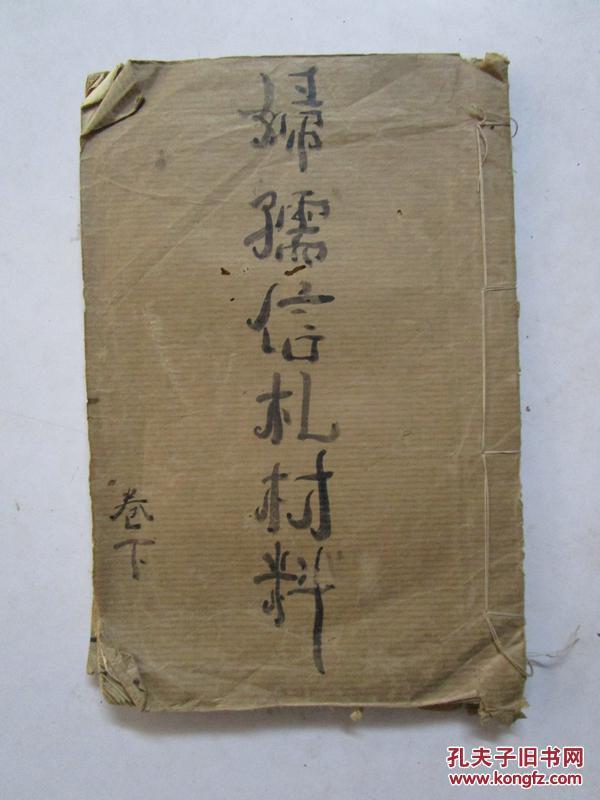 婦孺信札材料
卷下
孔夫子旧书网
www.kongfz.com